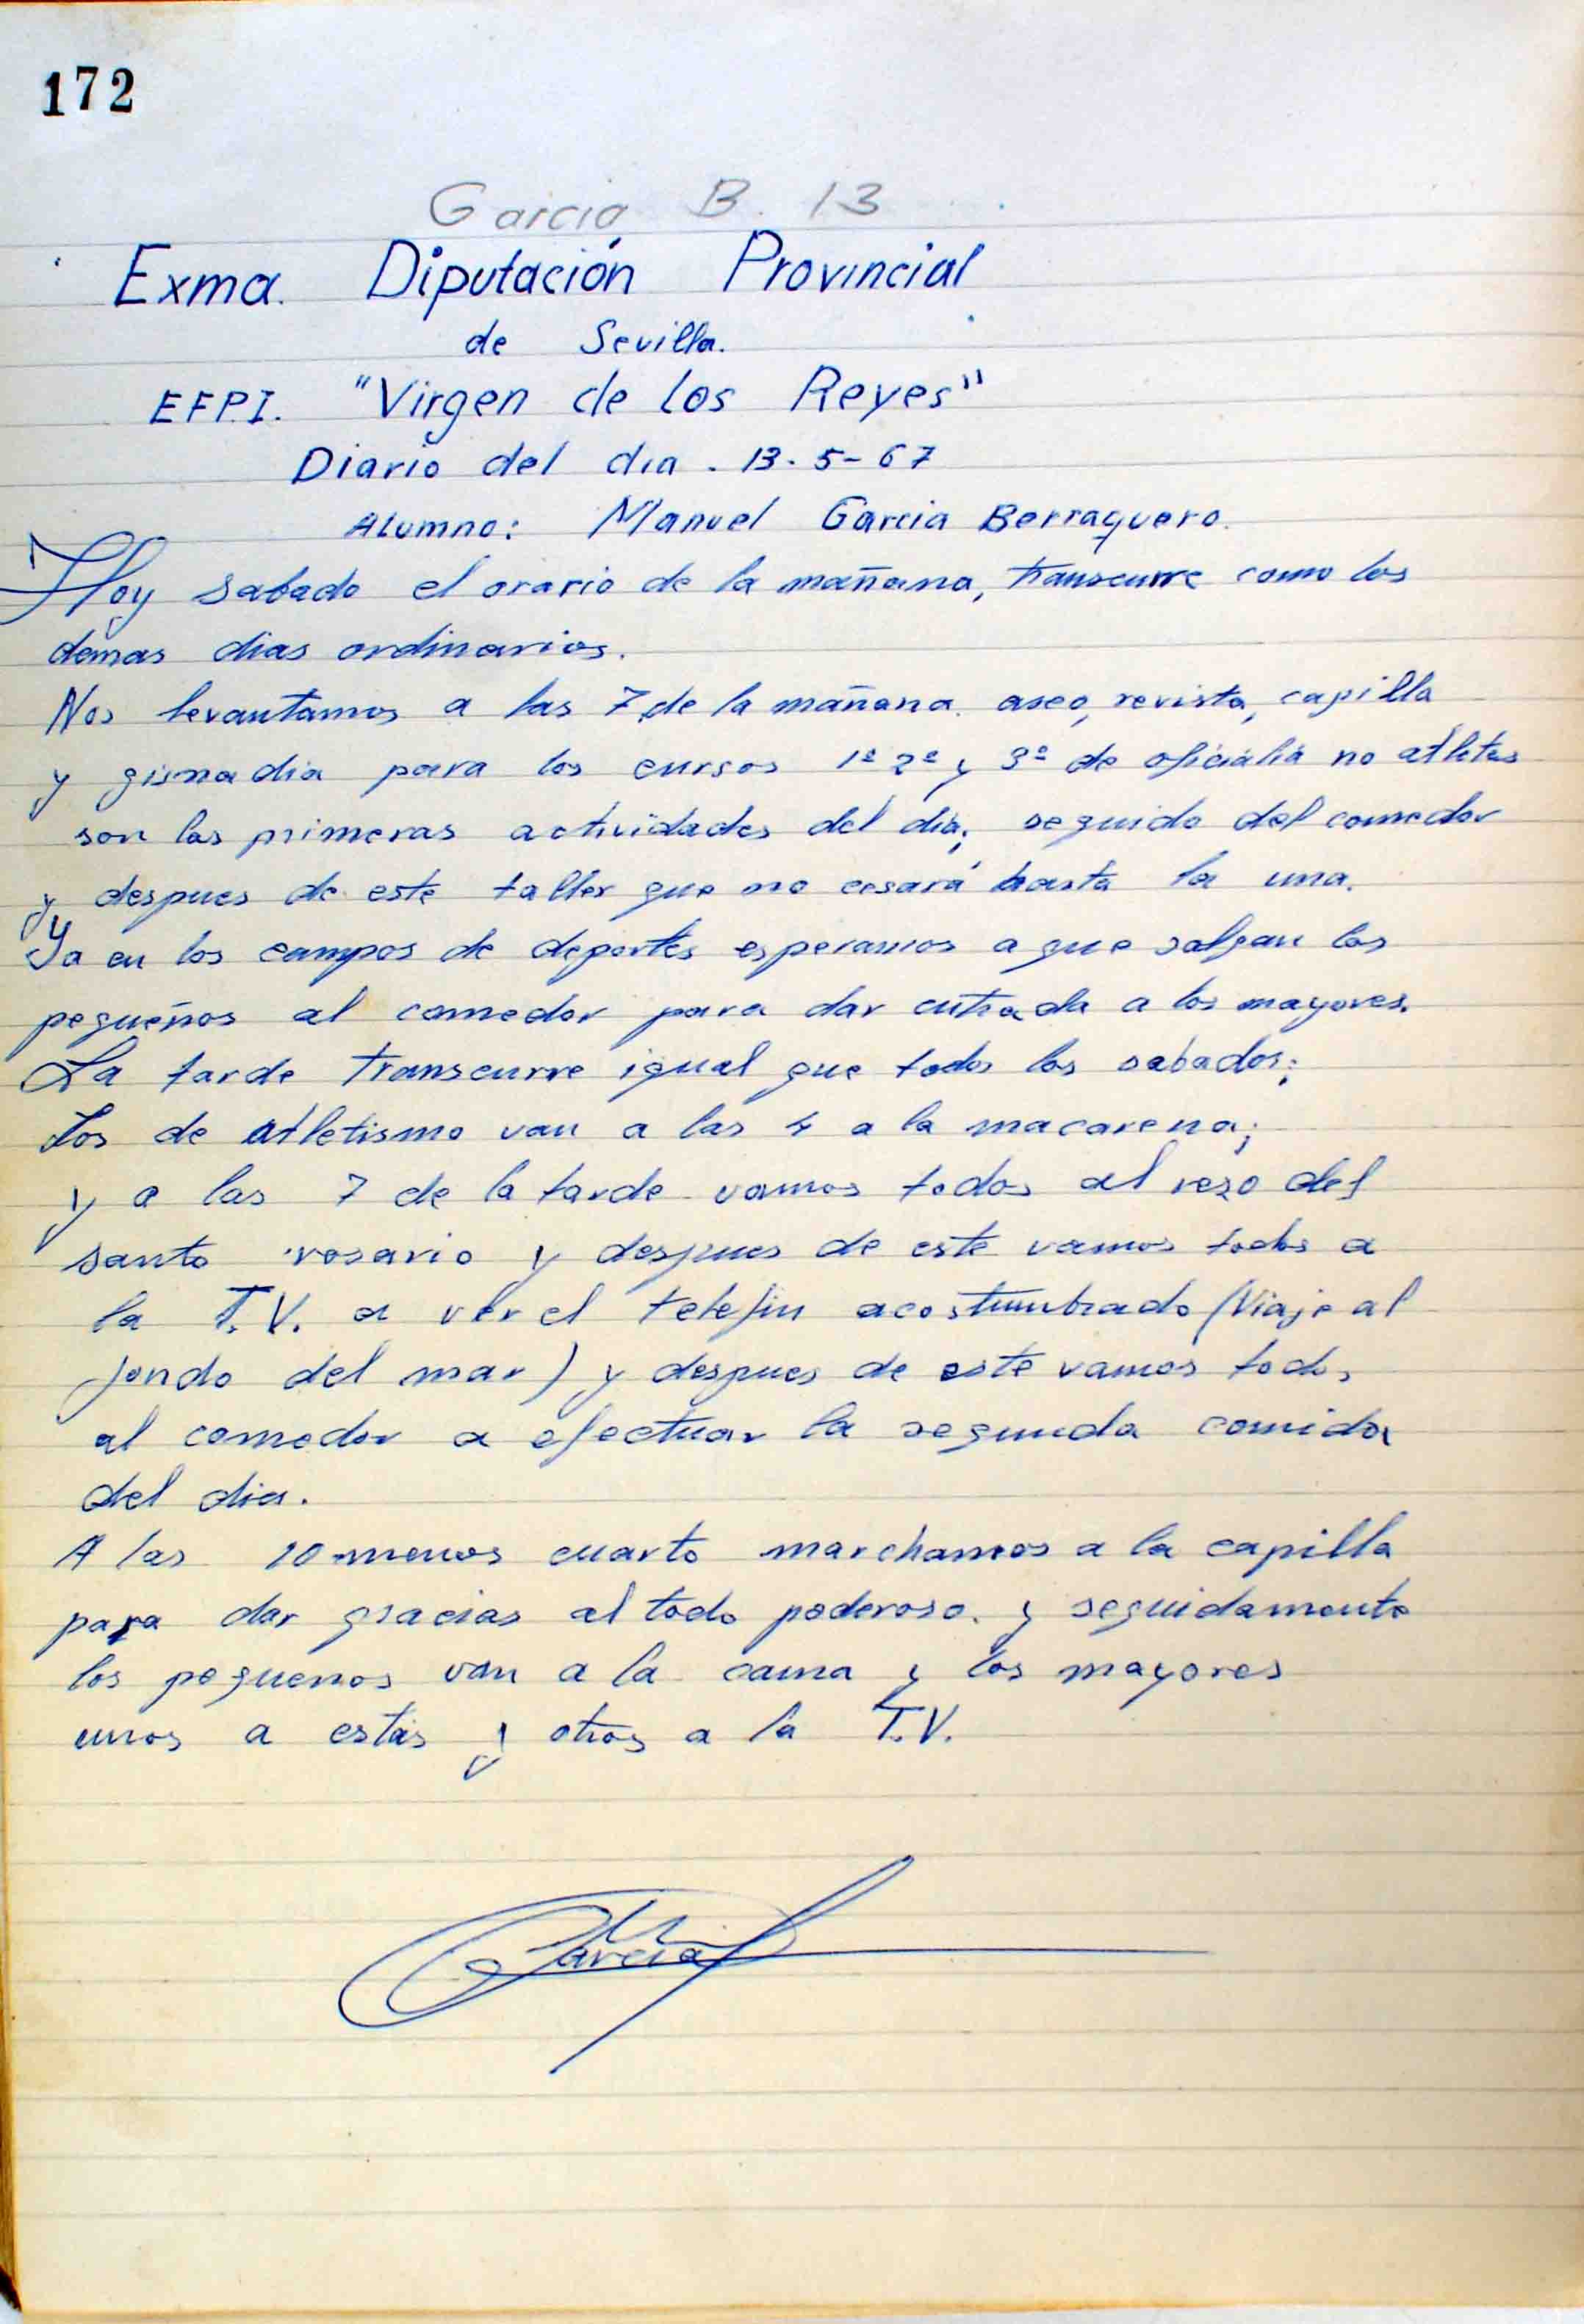 172
Garcia B. 13
Exma. Diputación Provincial
de Sevilla.
E.F.P.I. "Virgen de los Reyes"
Diario del dia. 13-5-67
Alumno: Manuel Garcia Berraquero.
Hoy sabado el orario de la mañana, transcurre como los
demas dias ordinarios.
Nos levantamos a las 7 de la mañana. aseo, revista, capilla
y gisnadia para los cursos 1º 2º y 3º de oficialia no atletas
son las primeras actividades del dia; seguido del comedor
y despues de este taller que no cesará hasta la una.
Ya en los campos de deportes esperamos a que salgan los
pequeños al comedor para dar entrada a los mayores.
La tarde transcurre igual que todos los sabados;
Los de atletismo van a las 4 a la macarena;
y a las 7 de la tarde vamos todos al rezo del
santo rosario y despues de este vamos todos a
la T.V. a ver el telefin acostumbrado (Viaje al
fondo del mar) y despues de este vamos todos
al comedor a efectuar la segunda comida
del dia.
A las 10 menos cuarto marchamos a la capilla
para dar gracias al todo poderoso. y seguidamente
los pequenos van a la cama y los mayores
unos a estas y otros a la T.V.
M. Garcia